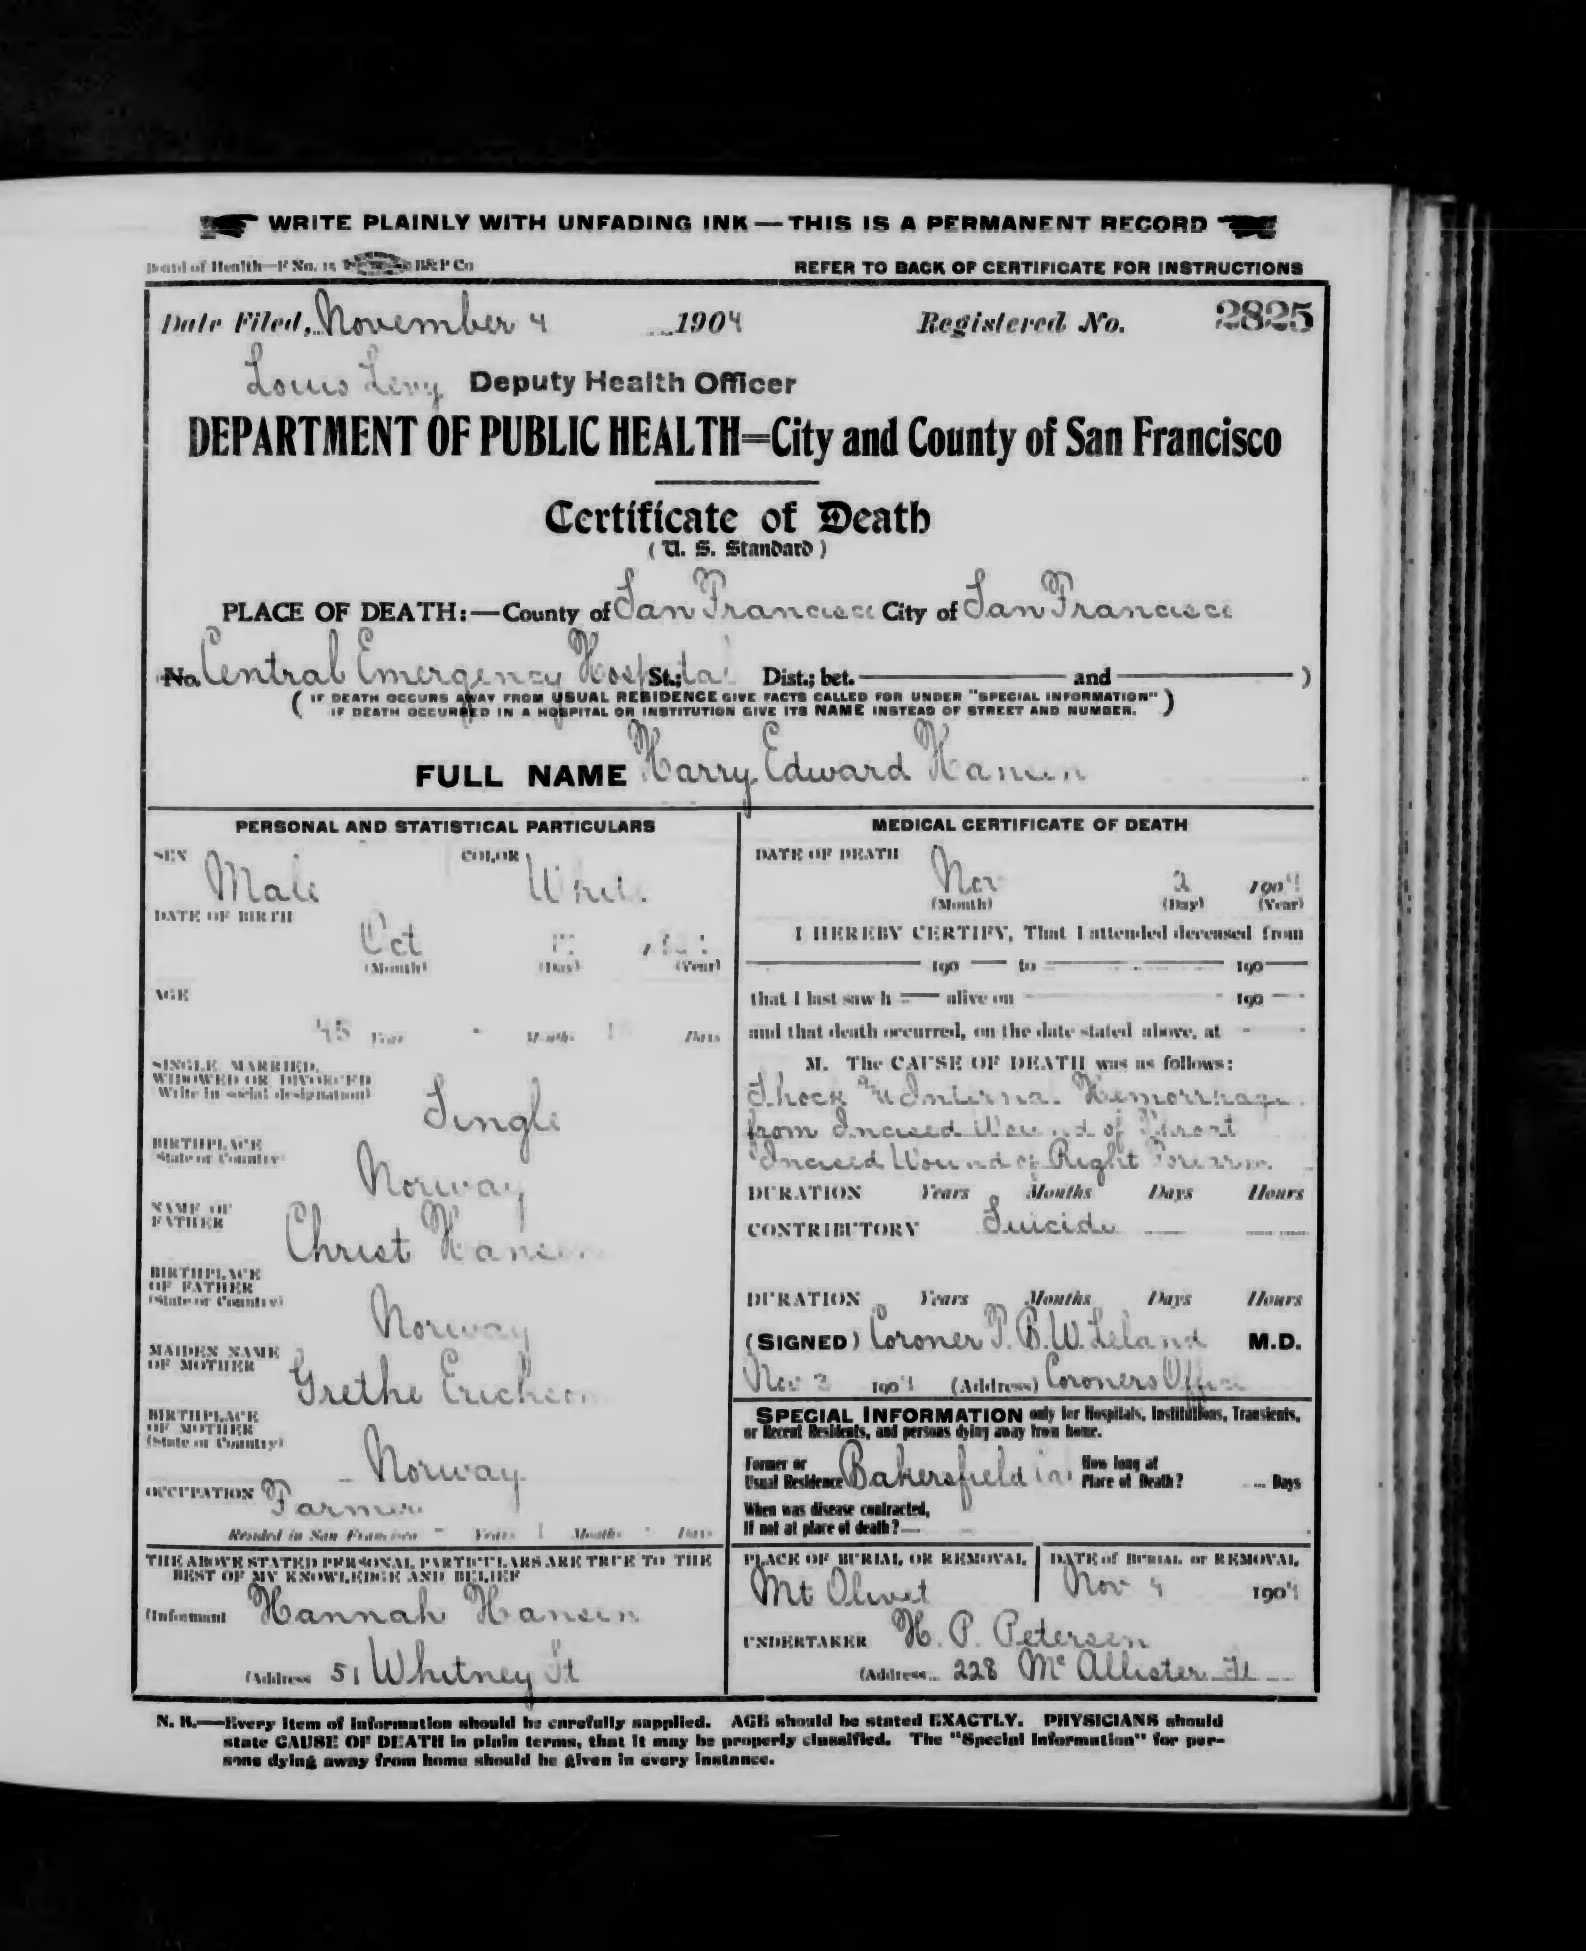 WRITE PLAINLY WITH UNFADING INK — THIS IS A PERMANENT RECORD
Board of Health—F No. 15 B&P Co
REFER TO BACK OF CERTIFICATE FOR INSTRUCTIONS
Date Filed, November 4 1904 Registered No. 2825
Louis Levy Deputy Health Officer
DEPARTMENT OF PUBLIC HEALTH=City and County of San Francisco
Certificate of Death
(U. S. Standard)
PLACE OF DEATH:—County of San Francisco City of San Francisco
No. Central Emergency Hospital St.; Dist.; bet. and )
( IF DEATH OCCURS AWAY FROM USUAL RESIDENCE GIVE FACTS CALLED FOR UNDER "SPECIAL INFORMATION"
IF DEATH OCCURRED IN A HOSPITAL OR INSTITUTION GIVE ITS NAME INSTEAD OF STREET AND NUMBER. )
FULL NAME Harry Edward Hansen
PERSONAL AND STATISTICAL PARTICULARS
SEX Male COLOR White
DATE OF BIRTH
Oct
(Month) (Day) (Year)
AGE
45 Years Months Days
SINGLE, MARRIED,
WIDOWED OR DIVORCED
(Write in social designation)
Single
BIRTHPLACE
(State or Country)
Norway
NAME OF
FATHER
Christ Hansen
BIRTHPLACE
OF FATHER
(State or Country)
Norway
MAIDEN NAME
OF MOTHER
Grethe Erickson
BIRTHPLACE
OF MOTHER
(State or Country)
Norway
OCCUPATION Farmer
Resided in San Francisco - Years 1 Months - Days
THE ABOVE STATED PERSONAL PARTICULARS ARE TRUE TO THE
BEST OF MY KNOWLEDGE AND BELIEF
(Informant Hannah Hansen
(Address 51 Whitney St
MEDICAL CERTIFICATE OF DEATH
DATE OF DEATH
Nov 2 1904
(Month) (Day) (Year)
I HEREBY CERTIFY, That I attended deceased from
190 to 190
that I last saw h alive on 190
and that death occurred, on the date stated above, at
M. The CAUSE OF DEATH was as follows:
Shock & Internal Hemorrhage
from Incised Wound of Throat
Incised Wound of Right Forearm
DURATION Years Months Days Hours
CONTRIBUTORY Suicide
DURATION Years Months Days Hours
(SIGNED) Coroner T. B. W. Leland M.D.
Nov 3 1904 (Address) Coroners Office
SPECIAL INFORMATION only for Hospitals, Institutions, Transients,
or Recent Residents, and persons dying away from home.
Former or
Usual Residence Bakersfield Cal
How long at
Place of Death? Days
When was disease contracted,
If not at place of death?
PLACE OF BURIAL OR REMOVAL
Mt Olivet
DATE of BURIAL or REMOVAL
Nov 4 1904
UNDERTAKER H. P. Petersen
(Address 228 McAllister St
N. B.—Every item of information should be carefully supplied. AGE should be stated EXACTLY. PHYSICIANS should
state CAUSE OF DEATH in plain terms, that it may be properly classified. The "Special Information" for per-
sons dying away from home should be given in every instance.